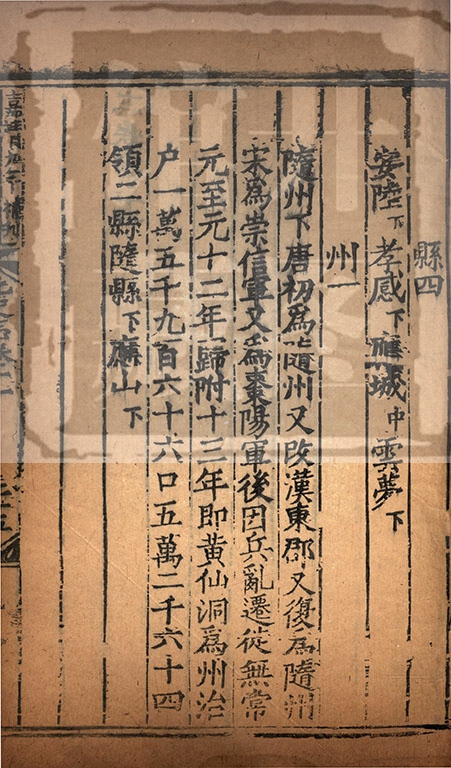 縣四
安陸下 孝感下 應城中 雲夢下
州一
隨州下唐初爲隨州又改漢東郡又復爲隨州
宋爲崇信軍又爲棗陽軍後因兵亂遷徙無常
元至元十二年歸附十三年即黃仙洞爲州治
户一萬五千九百六十六口五萬二千六十四
領二縣隨縣下應山下